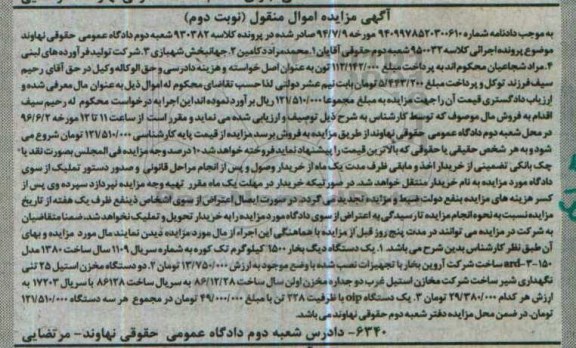 آگهی مزایده اموال منقول (نوبت دوم)
به موجب دادنامه شماره ۹۴۰۹۹۷۸۵۲۰۳۰۰۶۱۰ مورخه ۹۴/۷/۹ صادر شده در پرونده کلاسه ۹۳۰۳۸۲ شعبه دوم دادگاه عمومی حقوقی نهاوند
موضوع پرونده اجرائی کلاسه ۹۵۰۰۳۲ شعبه دوم حقوقی آقایان ۱. محمدمراد دکامین ۲. جهانبخش شهبازی ۳. شرکت تولید فرآورده های لبنی
۴. مراد شجاعیان محکوم اند به پرداخت مبلغ ۱۱۲/۱۴۲/۰۰۰ تون به عنوان اصل خواسته و هزینه دادرسی و حق الوکاله وکیل در حق آقای رحیم
سیف فرزند توکل و پرداخت مبلغ ۵/۴۶۳/۲۰۰ تومان بابت نیم عشر دولتی لذا حسب تقاضای محکوم له اموال ذیل به عنوان مال معرفی شده و
ارزیاب دادگستری قیمت آن را جهت مزایده به مبلغ مجموعا ۱۲۱/۵۱۰/۰۰۰ ریال برآورد نموده اند این اجرا به درخواست محکوم له رحیم سیف
اقدام به فروش مال موصوف که توسط کارشناس به شرح ذیل توصیف و ارزیابی شده می نماید و مقرر است از ساعت ۱۱ تا ۱۲ مورخه ۹۶/۶/۲
در محل شعبه دوم دادگاه عمومی حقوقی نهاوند از طریق مزایده به فروش برسد مزایده از قیمت پایه کارشناسی ۱۲۱/۵۱۰/۰۰۰ تومان شروع می
شود و به هر شخص حقیقی یا حقوقی که بالاترین قیمت را پیشنهاد نماید فروخته خواهد شد ۱۰ درصد وجه مزایده فی المجلس بصورت نقد یا
چک بانکی تضمینی از خریدار اخذ و مابقی ظرف مدت یک ماه از خریدار وصول و پس از انجام مراحل قانونی و صدور دستور تملیک از سوی
دادگاه مورد مزایده به نام خریدار منتقل خواهد شد. در صورتیکه خریدار در مهلت یک ماه مقرر تهیه وجه مزایده نپردازد سپرده وی پس از
کسر هزینه های مزایده بنفع دولت ضبط و مزایده تجدید می گردد. در صورت ایصال اعتراض از سوی اشخاص ذینفع ظرف یک هفته از تاریخ
مزایده نسبت به نحوه انجام مزایده تا رسیدگی به اعتراض از سوی دادگاه مورد مزایده را به خریدار تحویل و تملیک نخواهد شد. ضمنا متقاضیان
به شرکت در مزایده می توانند در مدت پنج روز قبل از مزایده با هماهنگی این اجراء از مال مورد مزایده دیدن نمایند مال مورد مزایده و بهای
آن طبق نظر کارشناس بدین شرح می باشد ۱. یک دستگاه دیگ بخار ۱۵۰۰ کیلوگرم تک کوره به شماره سریال ۱۱۰۹ سال ساخت ۱۳۸۰ مدل
ard-۳-۱۵۰ ساخت شرکت آروین بخار با تجهیزات نصب شده با وضع موجود به ارزش ۱۳/۷۵۰/۰۰۰ تومان ۲. دو دستگاه مخزن استیل ۲۵ تنی
نگهداری شیر ساخت شرکت مخازن استیل غرب دو جداره مخزن اولی سال ساخت ۸۶/۱۲/۲۸ به سریال ساخت ۸۶۱۲۸ با سریال ۱۷۲۰۳ به
ارزش هر کدام ۲۹/۳۸۰/۰۰۰ تومان ۳. یک دستگاه oip با ظرفیت ۲۲۸ تن با مبلغ ۴۹/۰۰۰/۰۰۰ تومان در مجموع هر سه دستگاه ۱۲۱/۵۱۰/۰۰۰
تومان. در ضمن محل مزایده دفتر شعبه دوم حقوقی نهاوند می باشد.
۶۳۴۰- دادرس شعبه دوم دادگاه عمومی حقوقی نهاوند- مرتضایی